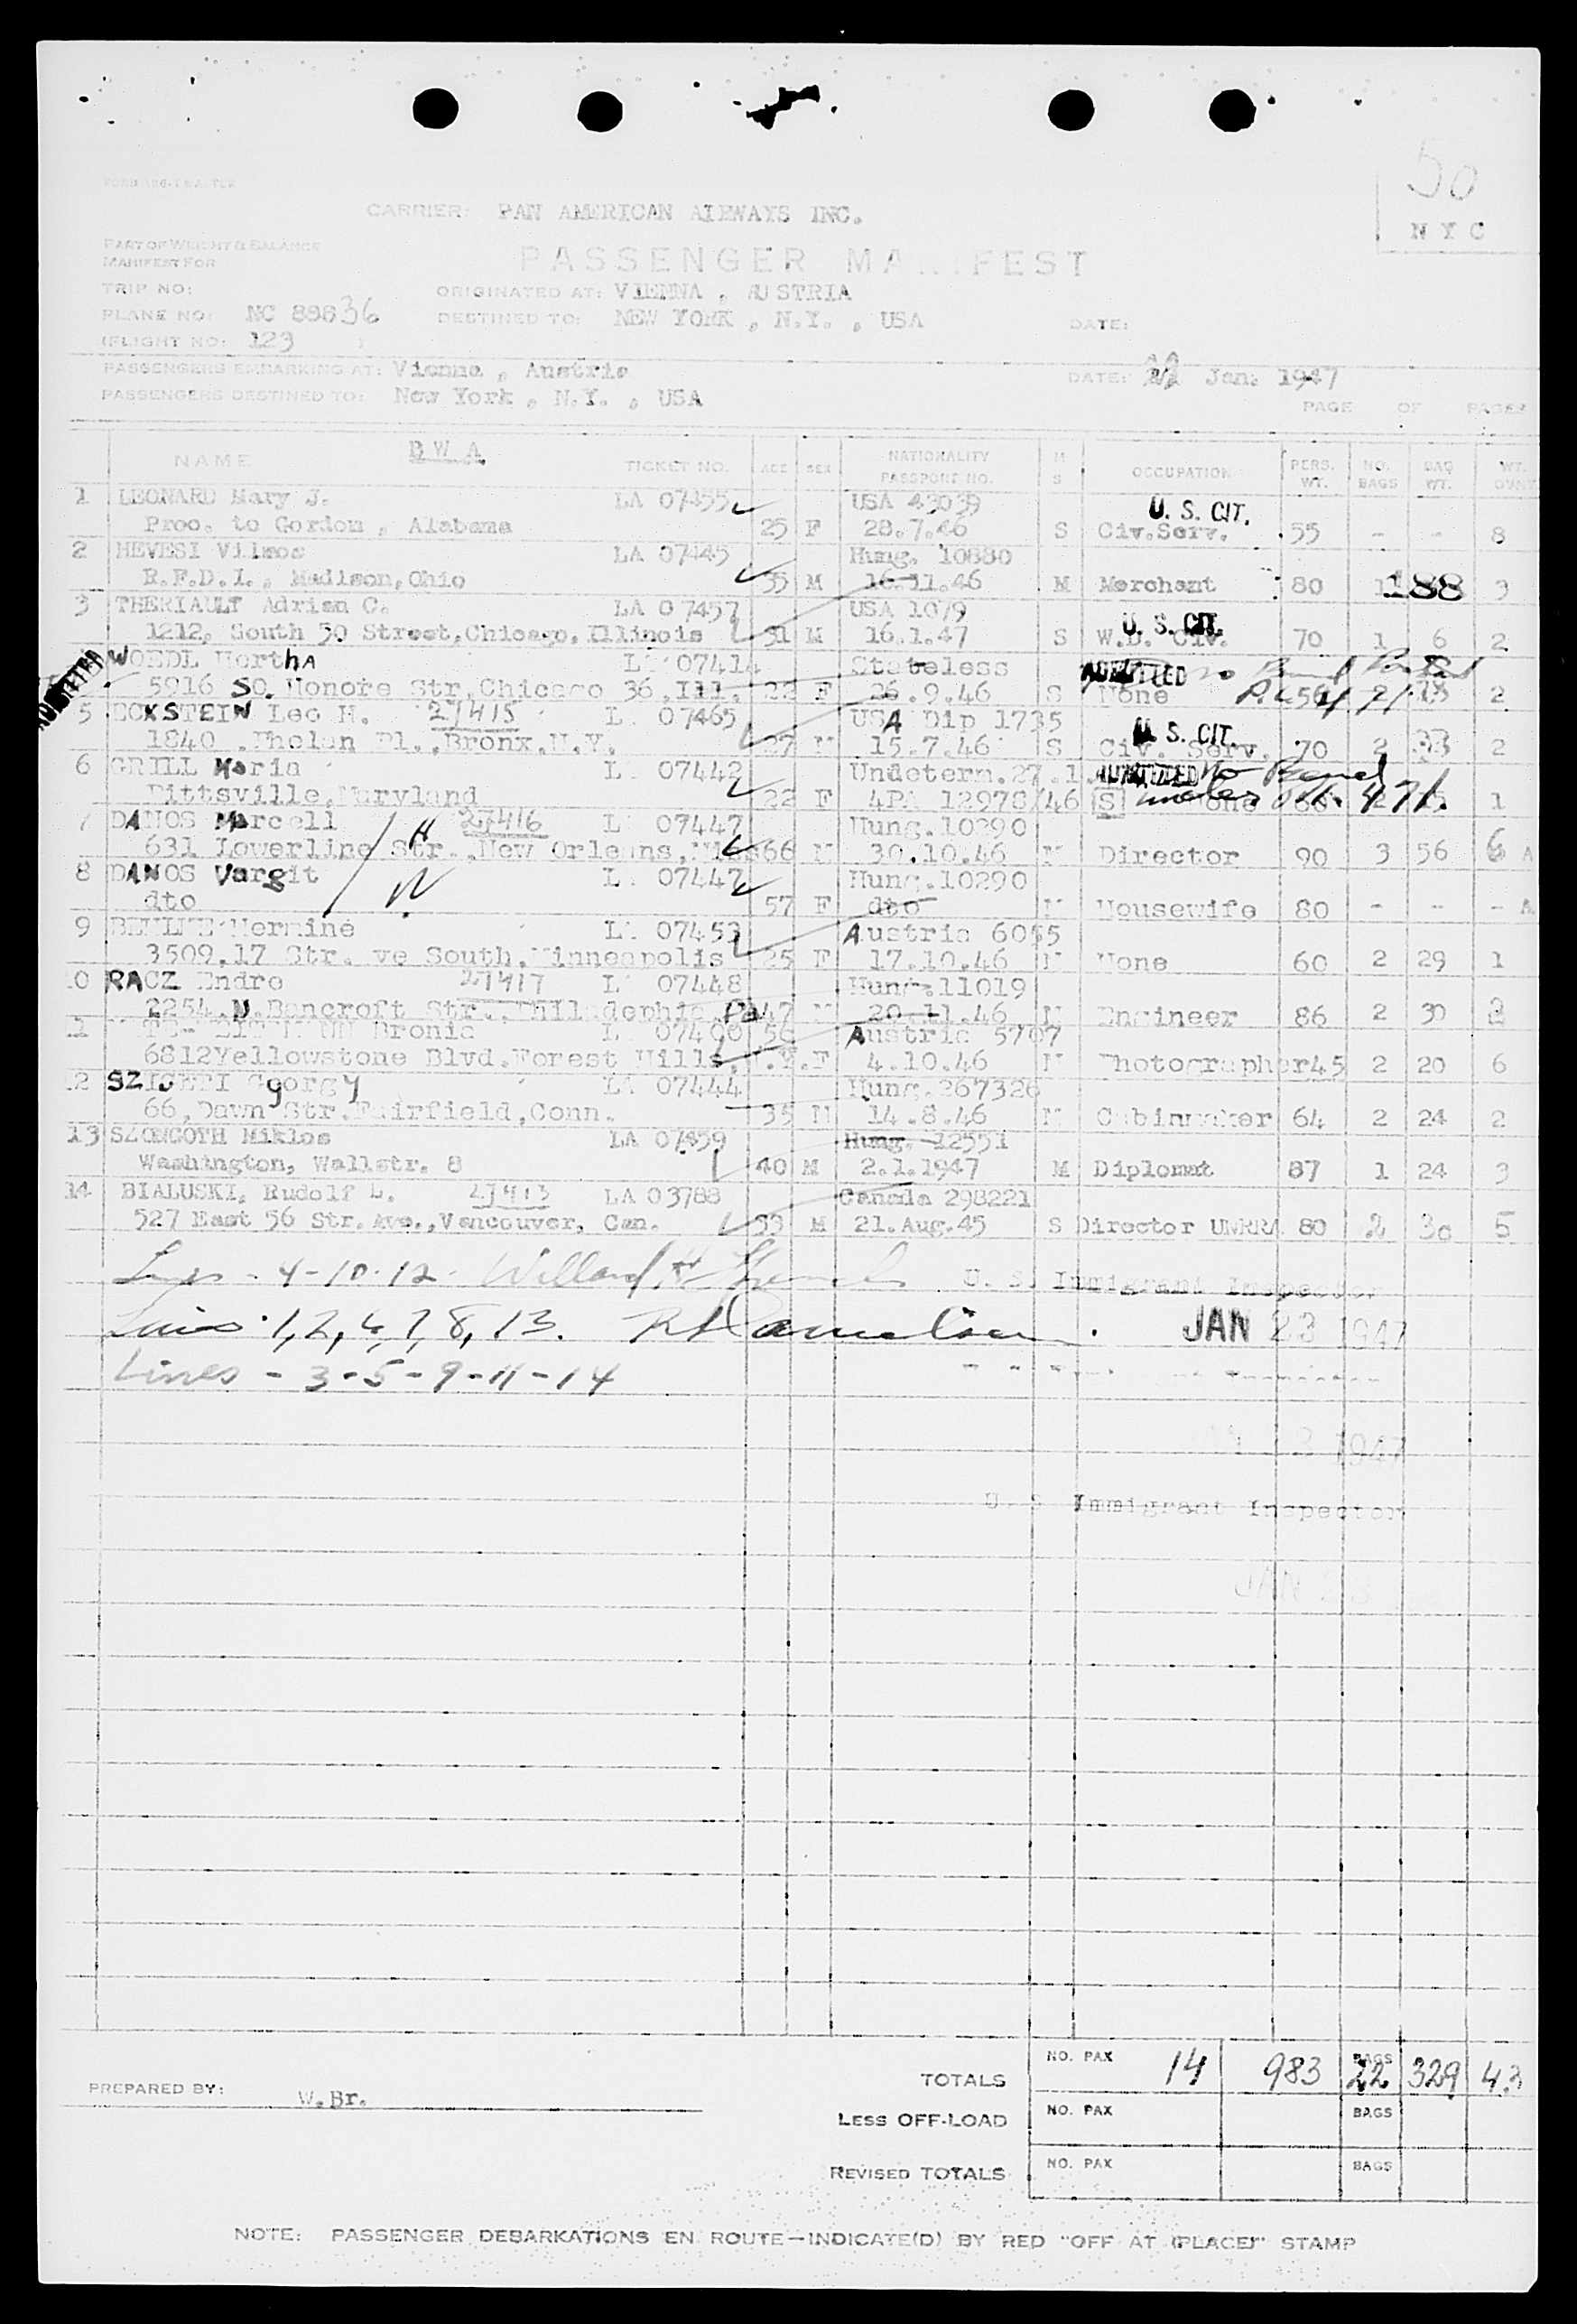 50
NYC
CARRIER: PAN AMERICAN AIRWAYS INC.
PART OF WEIGHT & BALANCE
MANIFEST FOR
PASSENGER MANIFEST
TRIP NO:
ORIGINATED AT: VIENNA , AUSTRIA
PLANE NO: NC 88836
DESTINED TO: NEW YORK , N.Y. , USA
DATE:
(FLIGHT NO: 123 )
PASSENGERS EMBARKING AT: Vienna , Austria
DATE: Jan. 1947
PASSENGERS DESTINED TO: New York , N.Y. , USA
PAGE OF PAGES
NAME B W A TICKET NO. AGE SEX NATIONALITY PASSPORT NO. M S OCCUPATION PERS. WT. NO. BAGS BAG WT. WT. OVNT
1 LEONARD Mary J. LA 07455 USA 43039 U. S. CIT.
Proc. to Gordon , Alabama 25 F 28.7.46 S Civ.Serv. 55 - - 8
2 HEVESI Vilmos LA 07445 Hung. 10880
R.F.D.I., Madison,Ohio 35 M 16.11.46 M Merchant 80 1 188 3
3 THERIAULT Adrien C. LA 07457 USA 1079 U. S. CIT.
1212, South 50 Street,Chicago,Illinois 31 M 16.1.47 S W.D. Civ. 70 1 6 2
WOEDL Hertha 07414 Stateless ADMITTED
5916 SO. Honore Str.Chicago 36,Ill. 22 F 26.9.46 S None 2
5 ECKSTEIN Leo H. 27415 L 07465 USA Dip 1735 U. S. CIT.
1840 .Phelan Pl.,Bronx.N.Y. 27 M 15.7.46 S Civ. Serv. 70 2 33 2
6 GRILL Maria L 07442 Undeterm.27.1 ADMITTED No Bond
Pittsville,Maryland 22 F 4PA 12978/46 S None 1
7 DANOS Marcell 27416 L 07447 Hung.10290
631 Lowerline Str.,New Orleans, 66 M 30.10.46 M Director 90 3 56 6 A
8 DANOS Margit L 07447 Hung.10290
dto 57 F dto M Housewife 80 - - - A
9 Hermine L 07453 Austria 6055
3509,17 Str. ve South.Minneapolis 25 F 17.10.46 M None 60 2 29 1
10 RACZ Endre 27417 L 07448 Hung.11019
2254,N.Bancroft Str.,Philadephia Pa 47 M 20.11.46 M Engineer 86 2 30 2
11 Bronia L 07400 56 Austria 5707
6812Yellowstone Blvd.Forest Hills, N.Y. F 4.10.46 M Photographer 45 2 20 6
12 SZIGETI Gyorgy LA 07444 Hung.267326
66,Dawn Str.Fairfield,Conn. 35 M 14.8.46 M Cabinmaker 64 2 24 2
13 SZONGOTH Miklos LA 07459 Hung. 12551
Washington, Wallstr. 8 40 M 2.1.1947 M Diplomat 87 1 24 3
14 BIALUSKI, Rudolf L. 27413 LA 03788 Canada 298221
527 East 56 Str. Ave.,Vancouver, Can. 53 M 21.Aug.45 S Director UNRRA 80 2 30 5
Lines - 4-10-12 Willard H. U. S. Immigrant Inspector
Lines 1,2,6,7,8,13. JAN 23 1947
Lines - 3-5-9-11-14
JAN 23 1947
U. S. Immigrant Inspector
JAN 23
TOTALS NO. PAX 14 983 BAGS 22 329 43
PREPARED BY: W.Br.
LESS OFF-LOAD NO. PAX BAGS
REVISED TOTALS NO. PAX BAGS
NOTE: PASSENGER DEBARKATIONS EN ROUTE—INDICATE(D) BY RED "OFF AT (PLACE)" STAMP